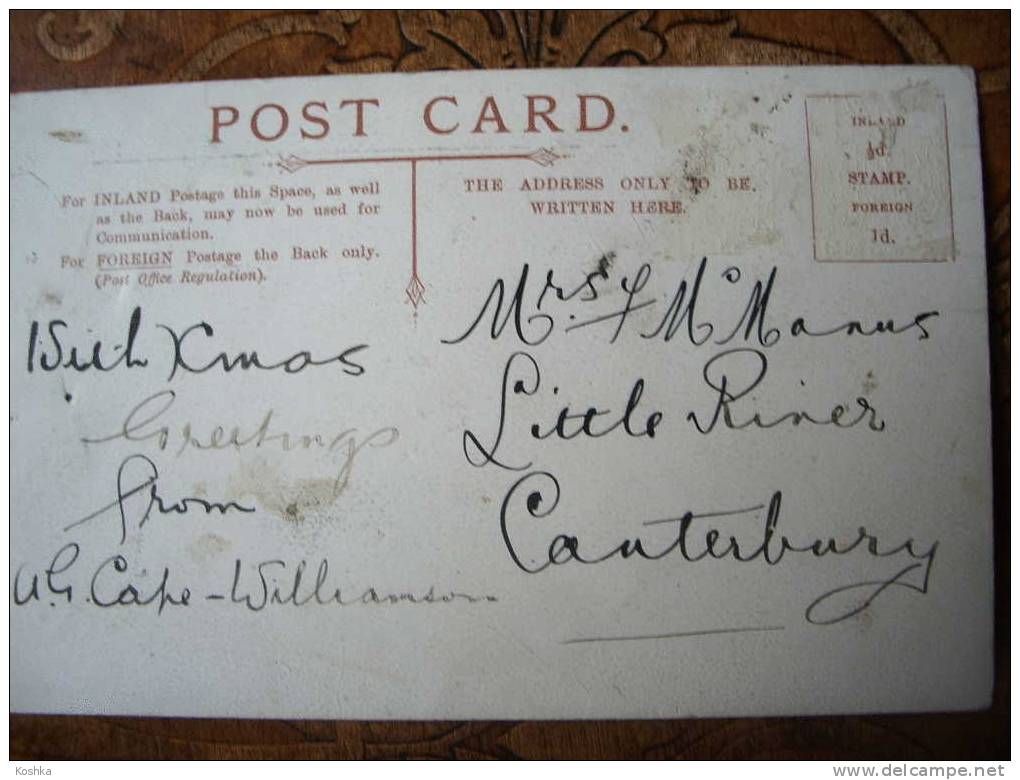 POST CARD.
For INLAND Postage this Space, as well
as the Back, may now be used for
Communication.
For FOREIGN Postage the Back only.
(Post Office Regulation).
THE ADDRESS ONLY TO BE
WRITTEN HERE.
INLAND
½d.
STAMP.
FOREIGN
1d.
With Xmas
Greetings
from
A.G. Cape-Williamson
Mrs. J McManus
Little River
Canterbury
Koshka
www.delcampe.net